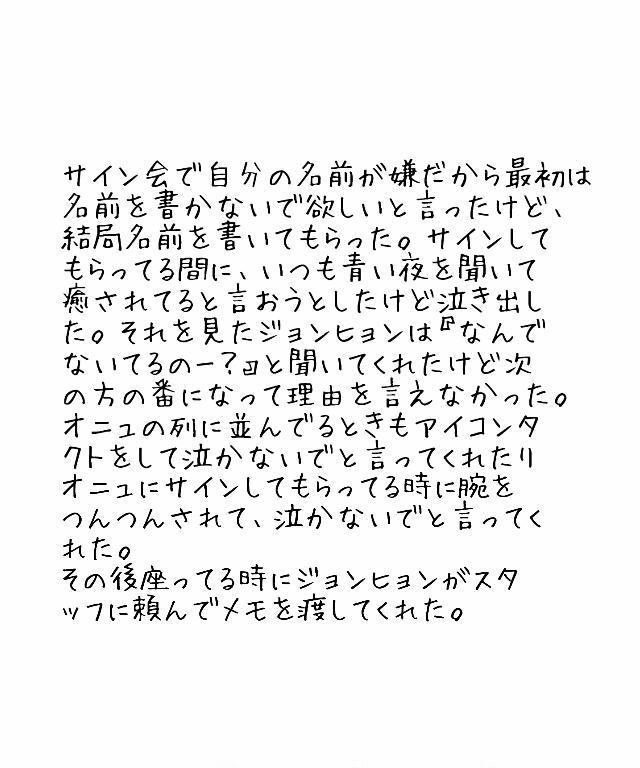 サイン会で自分の名前が嫌だから最初は
名前を書かないで欲しいと言ったけど、
結局名前を書いてもらった。サインして
もらってる間に、いつも青い夜を聞いて
癒されてると言おうとしたけど泣き出し
た。それを見たジョンヒョンは『なんで
ないてるのー?』と聞いてくれたけど次
の方の番になって理由を言えなかった。
オニュの列に並んでるときもアイコンタ
クトをして泣かないでと言ってくれたり
オニュにサインしてもらってる時に腕を
つんつんされて、泣かないでと言ってく
れた。
その後座ってる時にジョンヒョンがスタ
ッフに頼んでメモを渡してくれた。